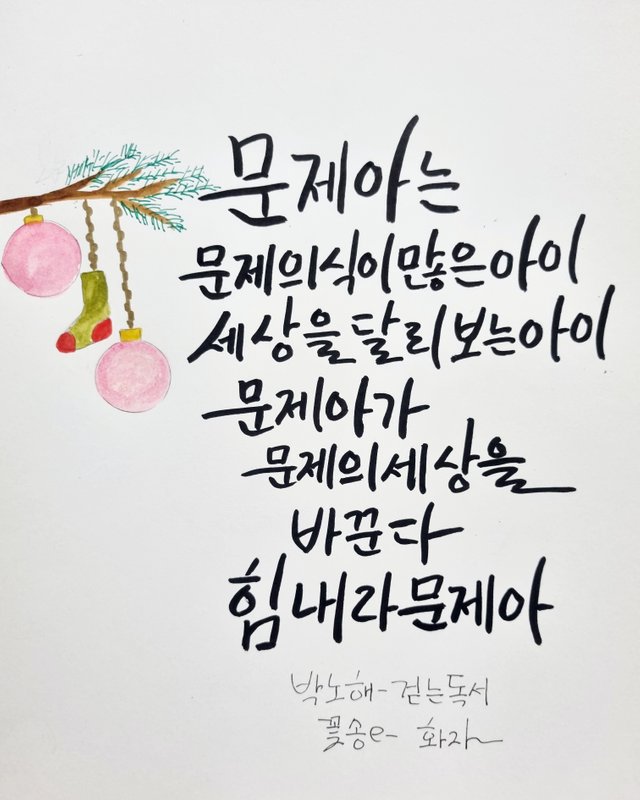 문제아는
문제의식이 많은 아이
세상을 달리 보는 아이
문제아가
문제의 세상을
바꾼다
힘내라 문제아
박노해-걷는독서
꽃송e- 화자